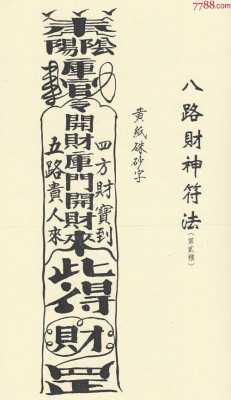 7788.com
八路財神符法
(第貳種)
黃紙硃砂字
陰陽
庫官令開財庫門開財來
四方財寶到
五路貴人來
此得財罡